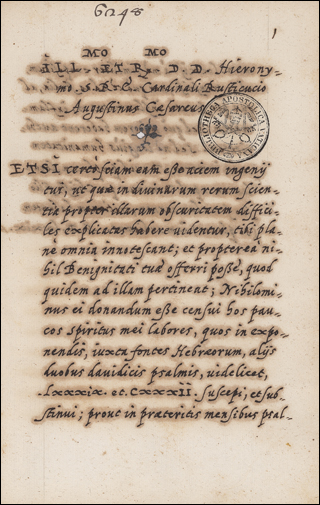 6248
1
MO MO
ILL. ET R. D. D. Hierony-
mo S. R. E. Cardinali Rusticucio
Augustinus Caesareus
BIBLIOTHECA APOSTOLICA VATICANA
ETSI certo sciam eam esse aciem ingenij
tui, ut quae in divinarum rerum scien-
tia propter illarum obscuritatem diffici-
les explicatus habere videntur, tibi pla-
ne omnia innotescant; et propterea ni-
hil Benignitati tuae offerri posse, quod
quidem ad illam pertinent; Nihilomi-
nus ei donandum esse censui hos pau-
cos spiritus mei labores, quos in expo-
nendis, iuxta fontes Hebraeorum, alijs
duobus davidicis psalmis, videlicet,
.Lxxxix. et. CxxxII. suscepi, et sub-
stinui; prout in praeteritis mensibus psal-